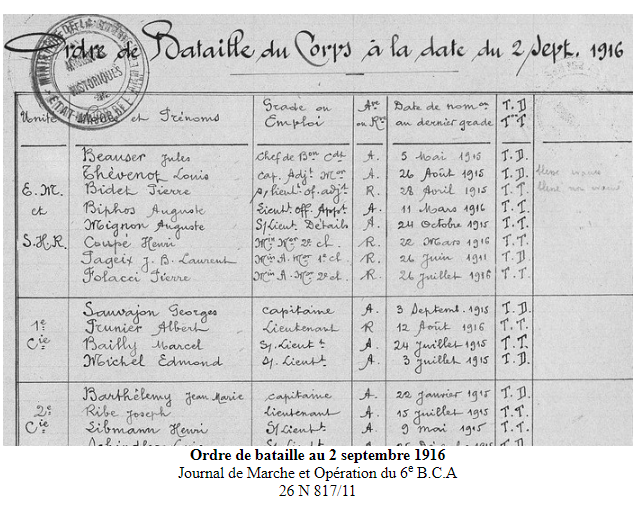 Ordre de Bataille du Corps à la date du 2 Sept. 1916
MINISTÈRE DE LA GUERRE
HISTORIQUES
ÉTAT-MAJOR DE L'
Unité et Prénoms Grade ou Emploi Ave ou Rve Date de nomon au dernier grade T.D. T.T.
E.M. et S.H.R.
Beauser Jules Chef de Bon Cdt A. 5 Mai 1915 T.D.
Thévenot Louis Cap. Adjt Mor A. 26 Août 1915 T.D.
Bidet Pierre S/lieut. Of. adjt R. 28 Avril 1915 T.T.
Biphos Auguste Lieutt Off. Appt A. 11 Mars 1916 T.T.
Mignon Auguste S/Lieut Détails A. 24 Octobre 1915 T.T.
Coupé Henri Min Mor 2e cl. R. 22 Mars 1916 T.T.
Pageix J.B. Laurent Min A. Mor 1e cl. R. 26 Juin 1911 T.D.
Folacci Pierre Min A. Mor 2e cl. R. 26 Juillet 1916 T.T.
1e Cie
Sauvajon Georges Capitaine A. 3 Septemb. 1915 T.D.
Prunier Albert Lieutenant R 12 Août 1916 T.T.
Bailly Marcel S/. Lieutt A. 24 Juillet 1915 T.T.
Michel Edmond S/. Lieutt A. 3 Juillet 1915 T.D.
2e Cie
Barthélemy Jean Marie Capitaine A. 22 Janvier 1915 T.D.
Ribe Joseph Lieutenant A. 15 Juillet 1915 T.T.
Libmann Henri S/ Lieutt A. 9 Mai 1915 T.T.
Ordre de bataille au 2 septembre 1916
Journal de Marche et Opération du 6e B.C.A
26 N 817/11